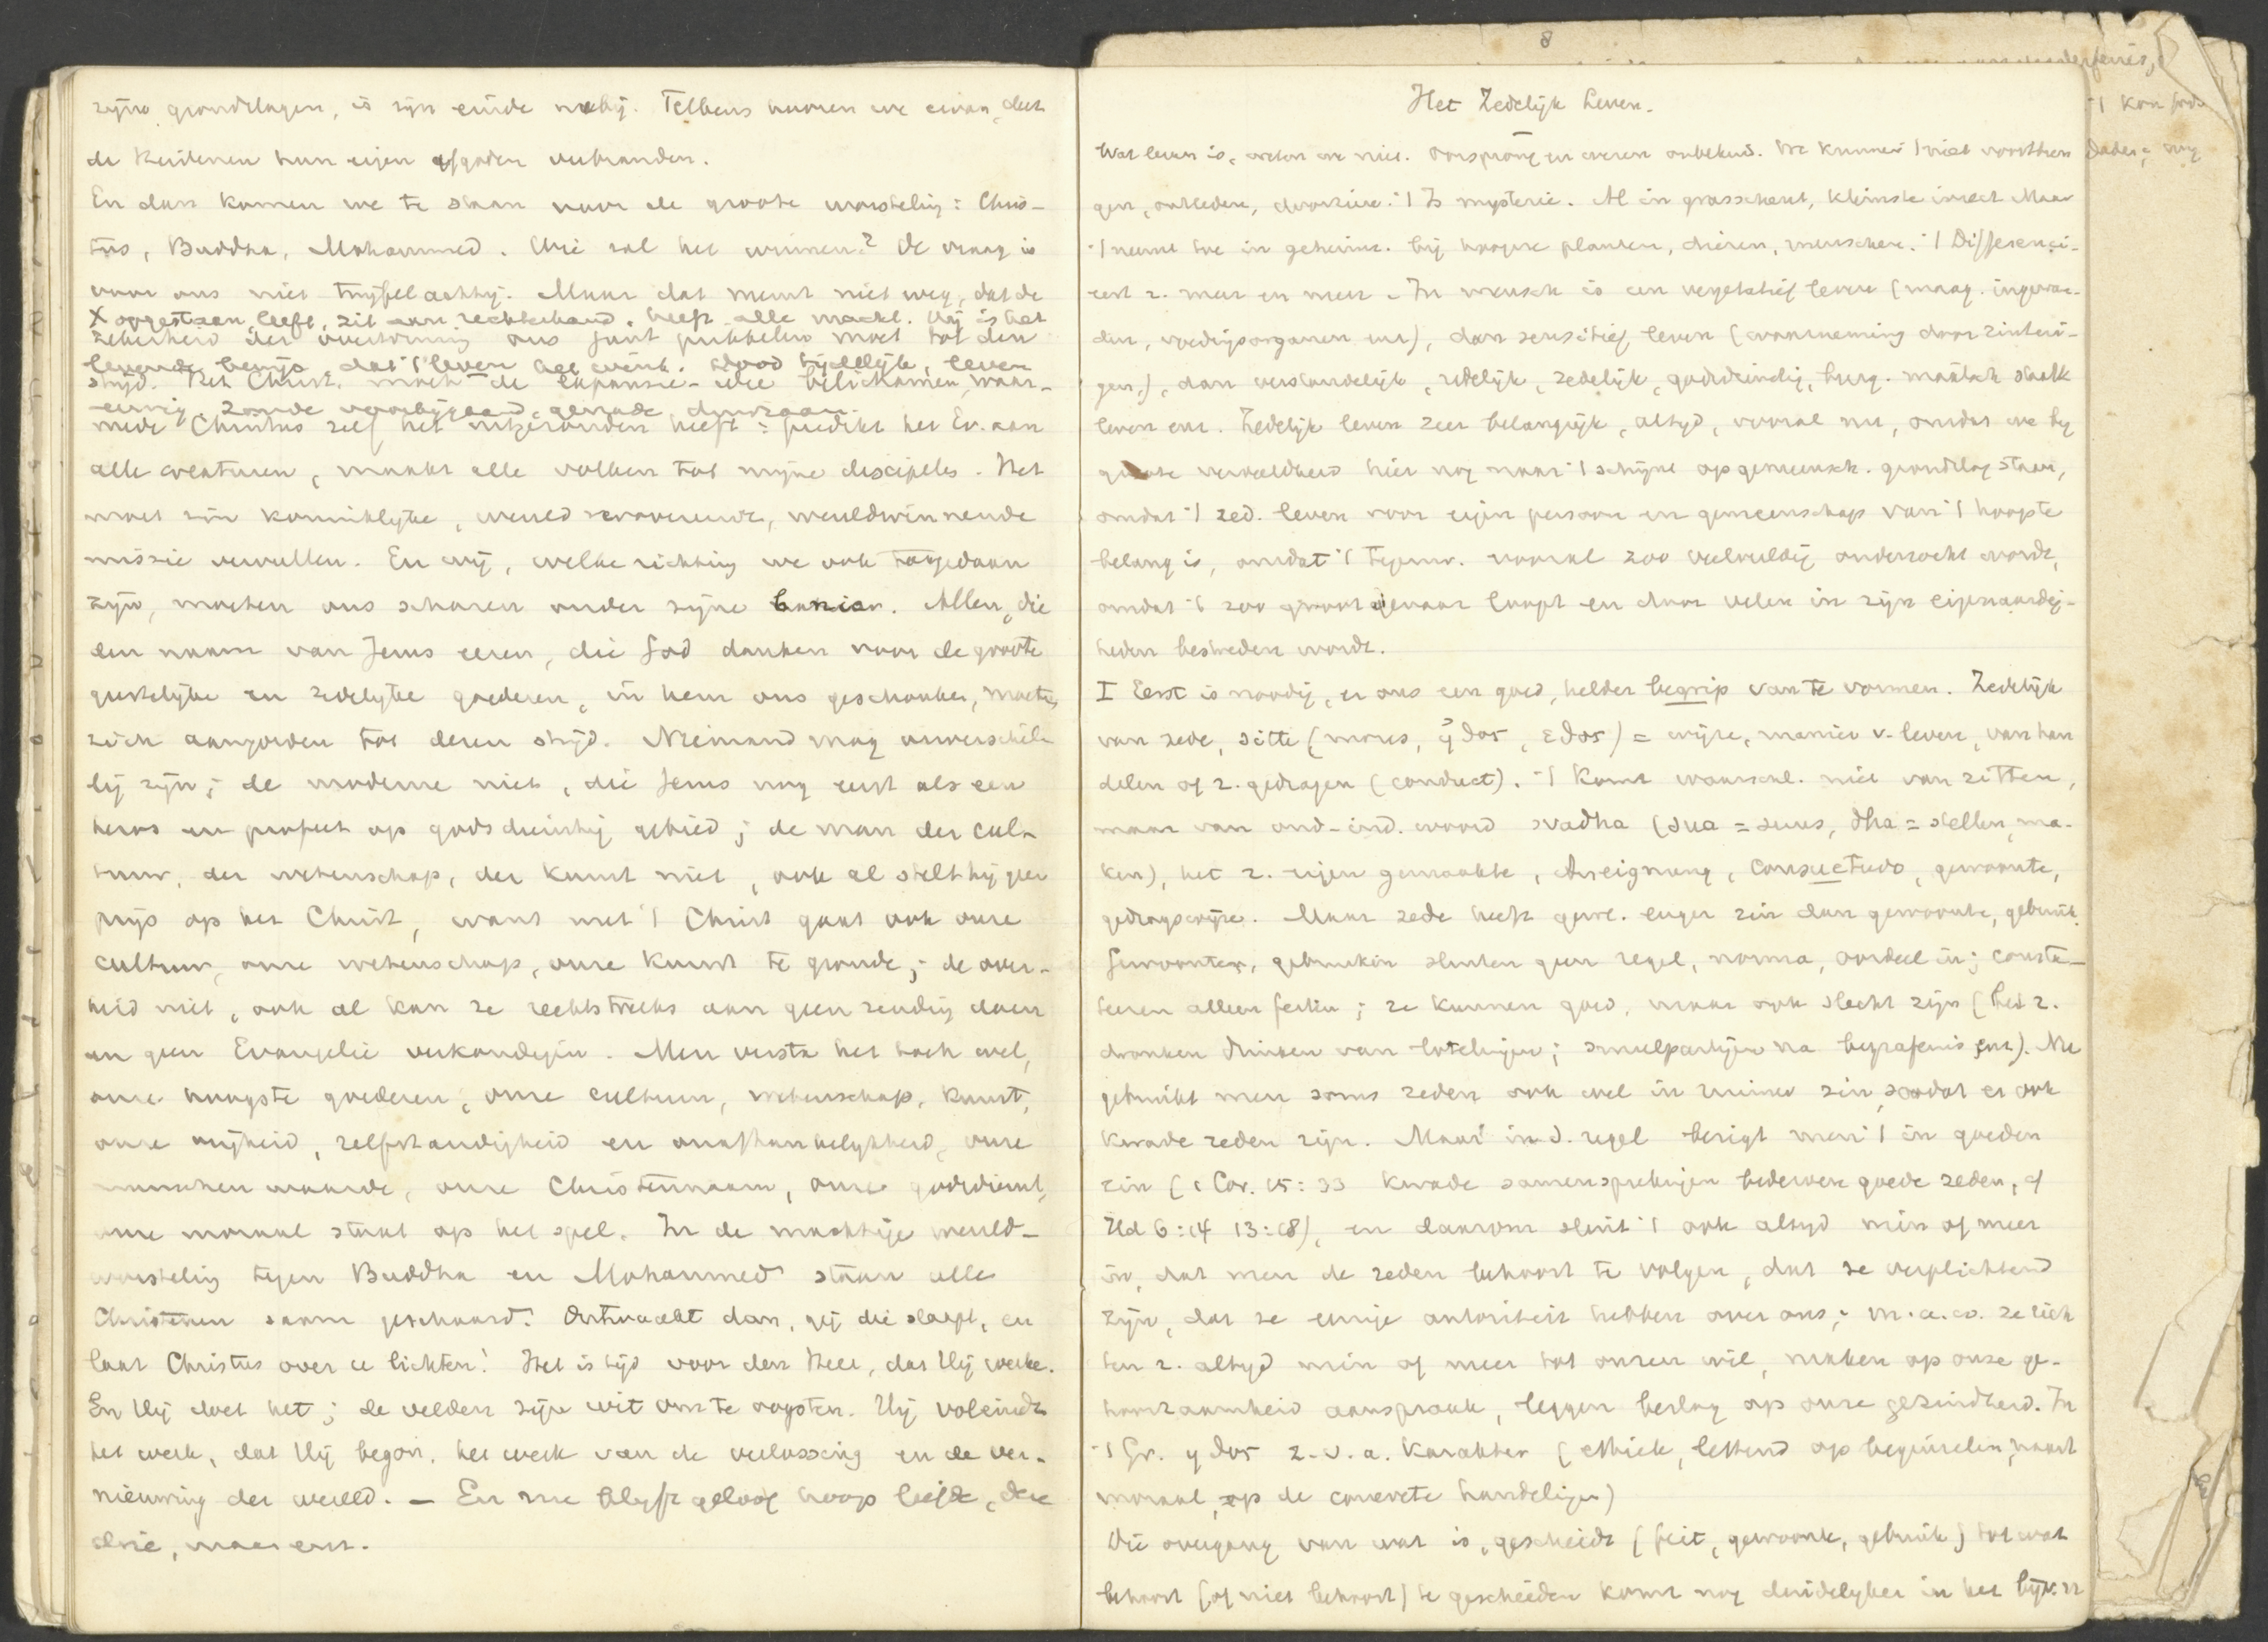 zijne grondslagen, is zijn einde nabij. Telkens hooren we ervan, dat
de Heidenen hun eigen afgoden verbranden.
En dan komen we te staan voor de groote worsteling: Chris-
tus, Buddha, Mohammed. Wie zal het winnen? De vraag is
voor ons niet twijfelachtig. Maar dat neemt niet weg, dat de
X opgestaan, leeft, zit aan rechterhand, heeft alle macht. Hij is het
zekerheid der overwinning ons juist prikkelen moet tot den
levende bewijs, dat 't leven het wint. Dood tijdelijk, leven
strijd. Het Christ. moet de expansie-idee belichamen, waar-
eeuwig. Zonde voorbijgaand, genade duurzaam.
mede Christus zelf het uitgezonden heeft: predikt het Ev. aan
alle creaturen, maakt alle volken tot mijne discipelen. Het
moet zijn koninklijke, wereldveroverende, wereldwinnende
missie vervullen. En wij, welke richting we ook toegedaan
zijn, moeten ons scharen onder zijne banier. Allen, die
den naam van Jezus eeren, die God danken voor de groote
geestelijke en zedelijke goederen, in hem ons geschonken, moeten
zich aangorden tot dezen strijd. Niemand mag onverschil-
lig zijn; de moderne niet, die Jezus nog eert als een
heros en profeet op godsdienstig gebied; de man der cul-
tuur, der wetenschap, der kunst niet, ook al stelt hij geen
prijs op het Christ, want met 't Christ gaat ook onze
cultuur, onze wetenschap, onze kunst te gronde; de over-
heid niet, ook al kan ze rechtstreeks aan geen zending doen
en geen Evangelie verkondigen. Men versta het toch wel,
onze hoogste goederen, onze cultuur, wetenschap, kunst,
onze vrijheid, zelfstandigheid en onafhankelijkheid, onze
menschenwaarde, onze Christennaam, onze godsdienst,
onze moraal staat op het spel. In de machtige wereld-
worsteling tegen Buddha en Mohammed staan alle
Christenen saam geschaard. Ontwaakt dan, gij die slaapt, en
laat Christus over u lichten! Het is tijd voor den Heer, dat Hij werke.
En Hij doet het; de velden zijn wit om te oogsten. Hij voleindt
het werk, dat Hij begon, het werk van de verlossing en de ver-
nieuwing der wereld. — En nu blijft geloof hoop liefde, deze
drie, maar enz.
8
Het Zedelijk Leven.
Wat leven is, weten we niet. Oorsprong en wezen onbekend. We kunnen 't niet voortbren
gen, ontleden, doorzien. 't Is mysterie. Al in grasscheut, kleinste insect. Maar
't neemt toe in geheim. bij hoogere planten, dieren, menschen. 't Differenci-
eert z. meer en meer. In mensch is een vegetatief leven (maag. ingewan-
den, voedingsorganen enz), dan sensitief leven (waarneming door zintui-
gen), dan verstandelijk, redelijk, zedelijk, godsdienstig, burg. maatsch staatk
leven enz. Zedelijk leven zeer belangrijk, altijd, vooral nu, omdat we bij
groote verdeeldheid hier nog naar 't schijnt op gemeensch. grondslag staan,
omdat 't zed. leven voor eigen persoon en gemeenschap van 't hoogste
belang is, omdat 't tegenw. vooral zoo veelvuldig onderzocht wordt,
omdat 't zoo groot gevaar loopt en door velen in zijn eigenaardig-
heden bestreden wordt.
I Eerst is noodig, er ons een goed, helder begrip van te vormen. Zedelijk
van zede, sitte (mores, ηθος, εθος) = wijze, manier v. leven, van han
delen of z. gedragen (conduct). 't Komt waarschl. niet van zitten,
maar van oud-ind. woord svadha (sva = suus, dha = stellen, ma-
ken), het z. eigen gemaakte, Aneignung, consuetudo, gewoonte,
gedragswijze. Maar zede heeft gew. enger zin dan gewoonte, gebruik.
Gewoonten, gebruiken sluiten geen regel, norma, oordeel in; consta-
teeren alleen feiten; ze kunnen goed, maar ook slecht zijn (het z.
dronken drinken van lotelingen; smulpartijen na begrafenis enz). Nu
gebruikt men soms zeden ook wel in ruimer zin, zoodat er ook
kwade zeden zijn. Maar in d. regel bezigt men 't in goeden
zin (1 Cor. 15:33 kwade samensprekingen bederven goede zeden, cf
Ned 6:14 13:18), en daarom sluit 't ook altijd min of meer
in, dat men de zeden behoort te volgen, dat ze verplichtend
zijn, dat ze eenige autoriteit hebben over ons; m.a.w. ze rich
ten z. altijd min of meer tot onzen wil, maken op onze ge-
hoorzaamheid aanspraak, leggen beslag op onze gezindheid. In
't Gr. ηθος z.v.a. karakter (ethiek, lettend op beginselen, naast
moraal, op de concrete handelingen)
Die overgang van wat is, geschiedt (feit, gewoonte, gebruik) tot wat
behoort (of niet behoort) te geschieden komt nog duidelijker in het bijv. nw